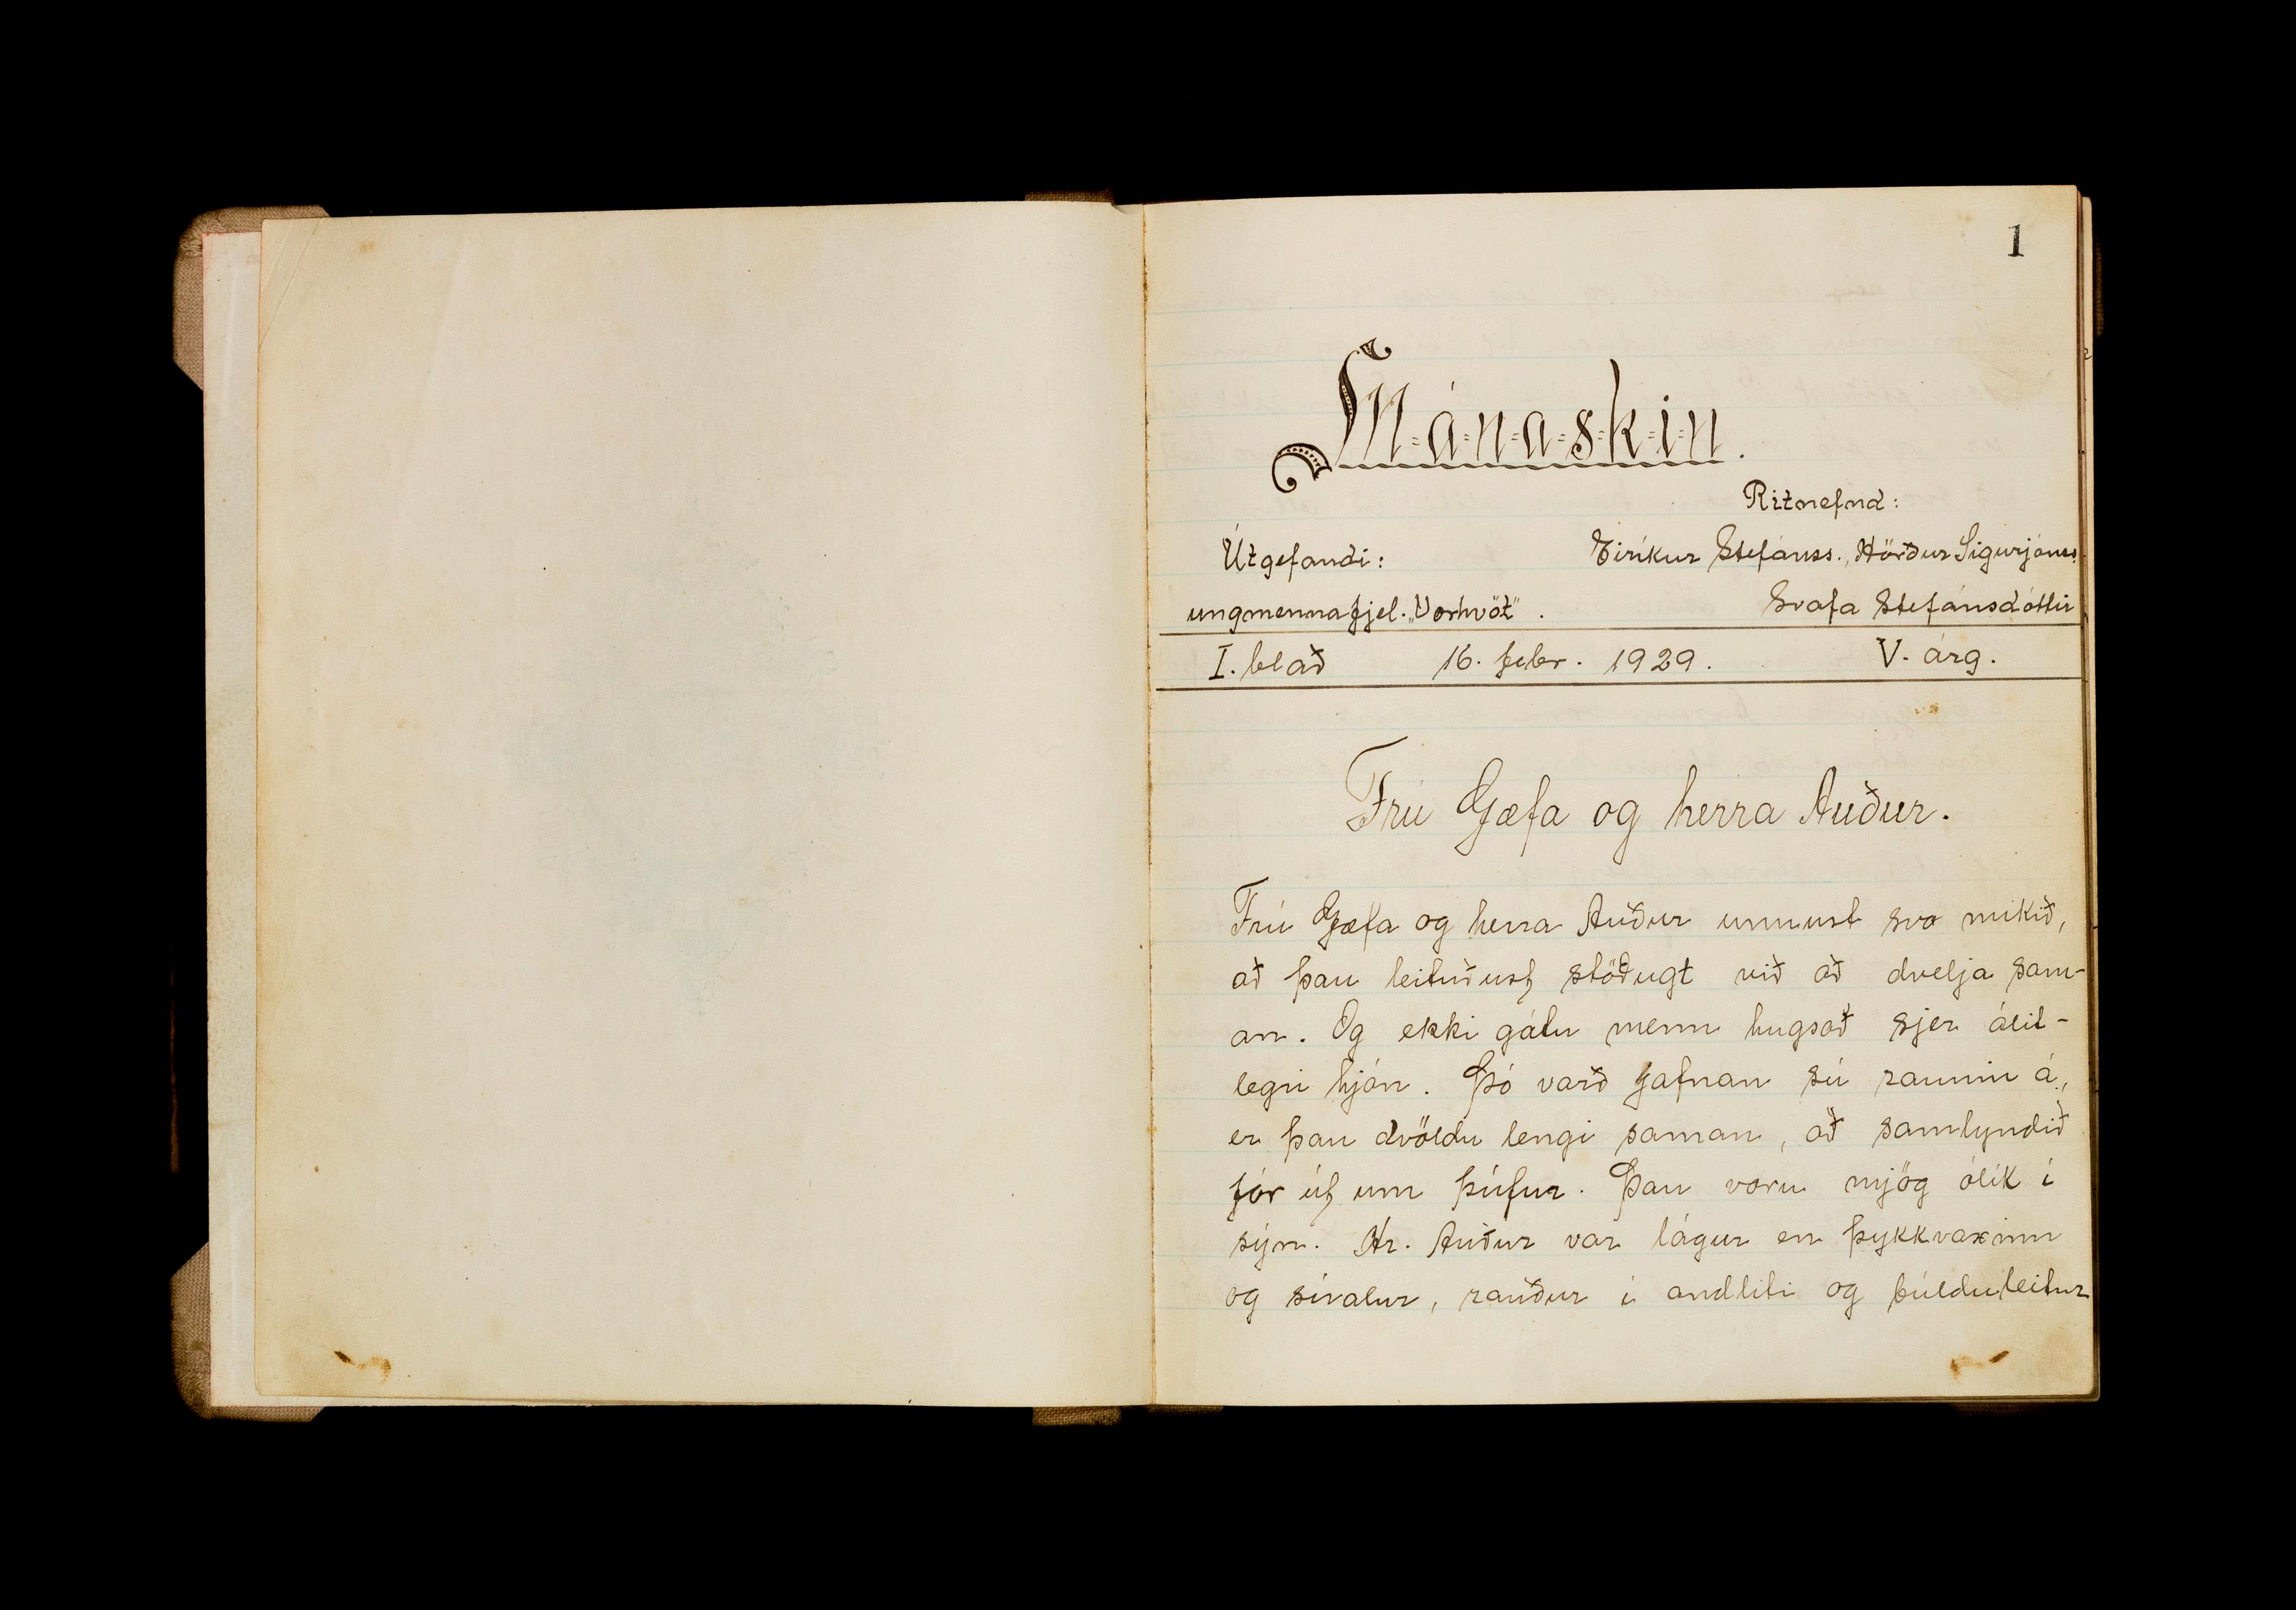 1
M=á=n=a=s=k=i=n.
Ritnefnd:
Útgefandi:
Eiríkur Stefánss., Hörður Sigurjónss.
ungmennafjel. „Vorhvöt".
Svafa Stefánsdóttir
I. blað 16. febr. 1929. V. árg.
Frú Gæfa og herra Auður.
Frú Gæfa og herra Auður unnust svo mikið,
að þau leituðust stöðugt við að dvelja sam-
an. Og ekki gátu menn hugsað sjer álit-
legri hjón. Þó varð jafnan sú raunin á,
er þau dvöldu lengi saman, að samlyndið
fór út um þúfur. Þau voru mjög ólík í
sýn. Hr. Auður var lágur en þykkvaxinn
og sívalur, rauður í andliti og búlduleitur